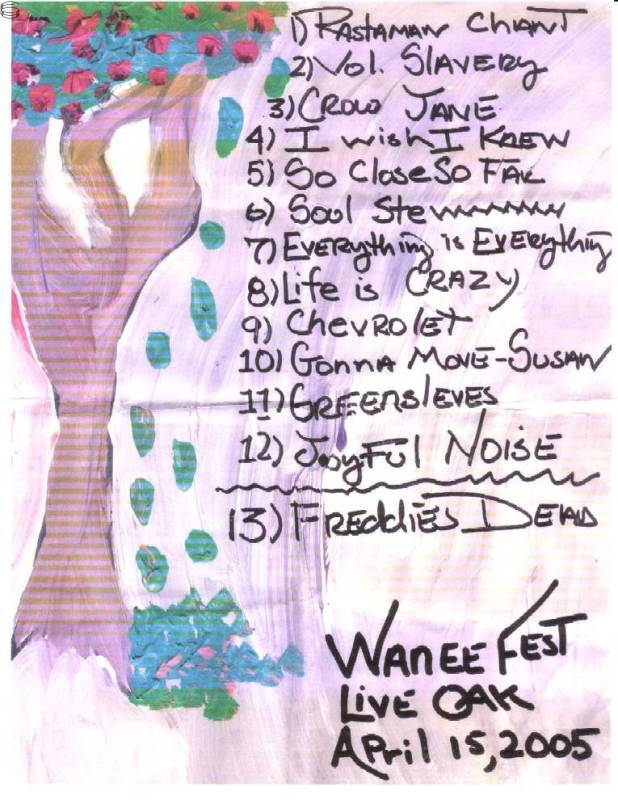 1) RASTAMAN CHANT
2) Vol. SLAVERY
3) CROW JANE
4) I wish I KNEW
5) So Close So FAR
6) Soul Stew
7) EVERYthing is EVERYthing
8) Life is CRAZY
9) CHEVROLET
10) GONNA MOVE-SUSAN
11) GREENSLEVES
12) JoyFul NOISE
13) FREDDIES DEAD
WANEE FEST
LIVE OAK
April 15, 2005